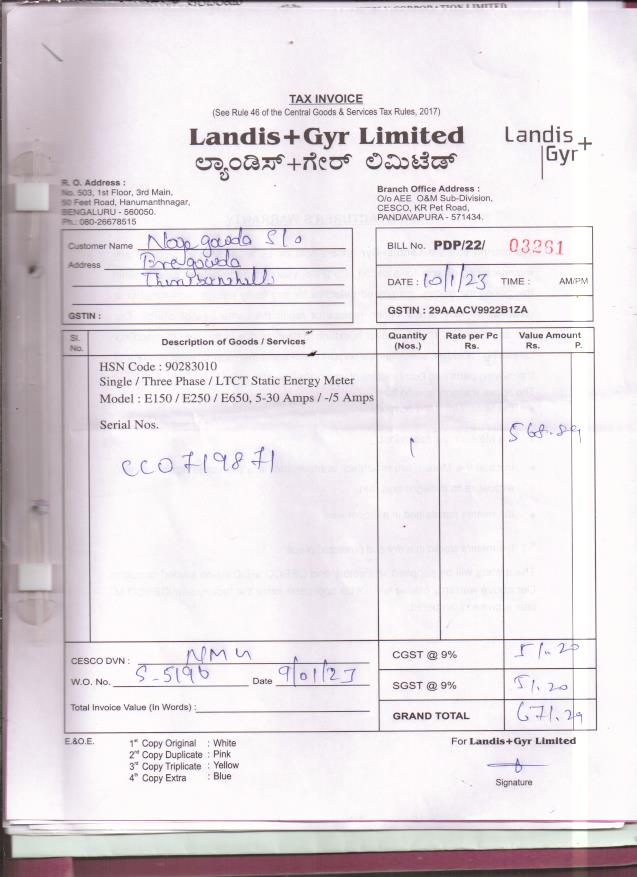 TAX INVOICE
(See Rule 46 of the Central Goods & Services Tax Rules, 2017)
Landis+Gyr Limited
ಲ್ಯಾಂಡಿಸ್+ಗೇರ್ ಲಿಮಿಟೆಡ್
Landis+
Gyr
R. O. Address :
No. 503, 1st Floor, 3rd Main,
50 Feet Road, Hanumanthnagar,
BENGALURU - 560050.
Ph.: 080-26678515
Branch Office Address :
O/o AEE O&M Sub-Division,
CESCO, KR Pet Road,
PANDAVAPURA - 571434.
Customer Name S/o
Address
GSTIN :
BILL No. PDP/22/ 03261
DATE : 10/1/23 TIME : AM/PM
GSTIN : 29AAACV9922B1ZA
Sl. No. Description of Goods / Services Quantity (Nos.) Rate per Pc Rs. Value Amount Rs. P.
HSN Code : 90283010
Single / Three Phase / LTCT Static Energy Meter
Model : E150 / E250 / E650, 5-30 Amps / -/5 Amps
Serial Nos. 1 568.89
CC0719871
CESCO DVN : NMU
W.O. No. S-5196 Date 9/01/23
Total Invoice Value (In Words) :
CGST @ 9% 51.20
SGST @ 9% 51.20
GRAND TOTAL 671.29
E.&O.E.
1st Copy Original : White
2nd Copy Duplicate : Pink
3rd Copy Triplicate : Yellow
4th Copy Extra : Blue
For Landis+Gyr Limited
Signature